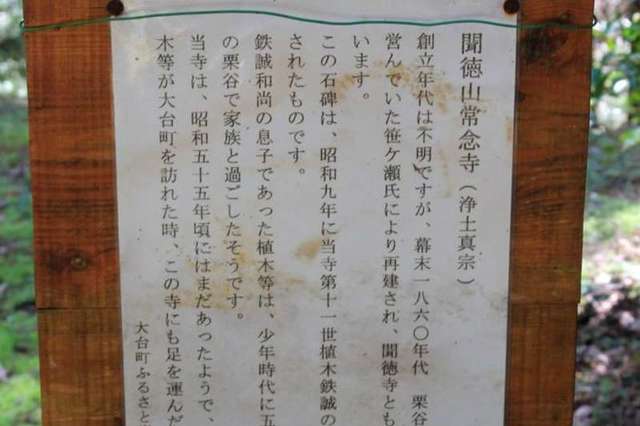 聞徳山常念寺（浄土真宗）
創立年代は不明ですが、幕末一八六〇年代　栗谷
営んでいた笹ケ瀬氏により再建され、聞徳寺とも
います。
この石碑は、昭和九年に当寺第十一世植木鉄誠の
されたものです。
鉄誠和尚の息子であった植木等は、少年時代に五
の栗谷で家族と過ごしたそうです。
当寺は、昭和五十五年頃にはまだあったようで、
木等が大台町を訪れた時、この寺にも足を運んだ
大台町ふるさと